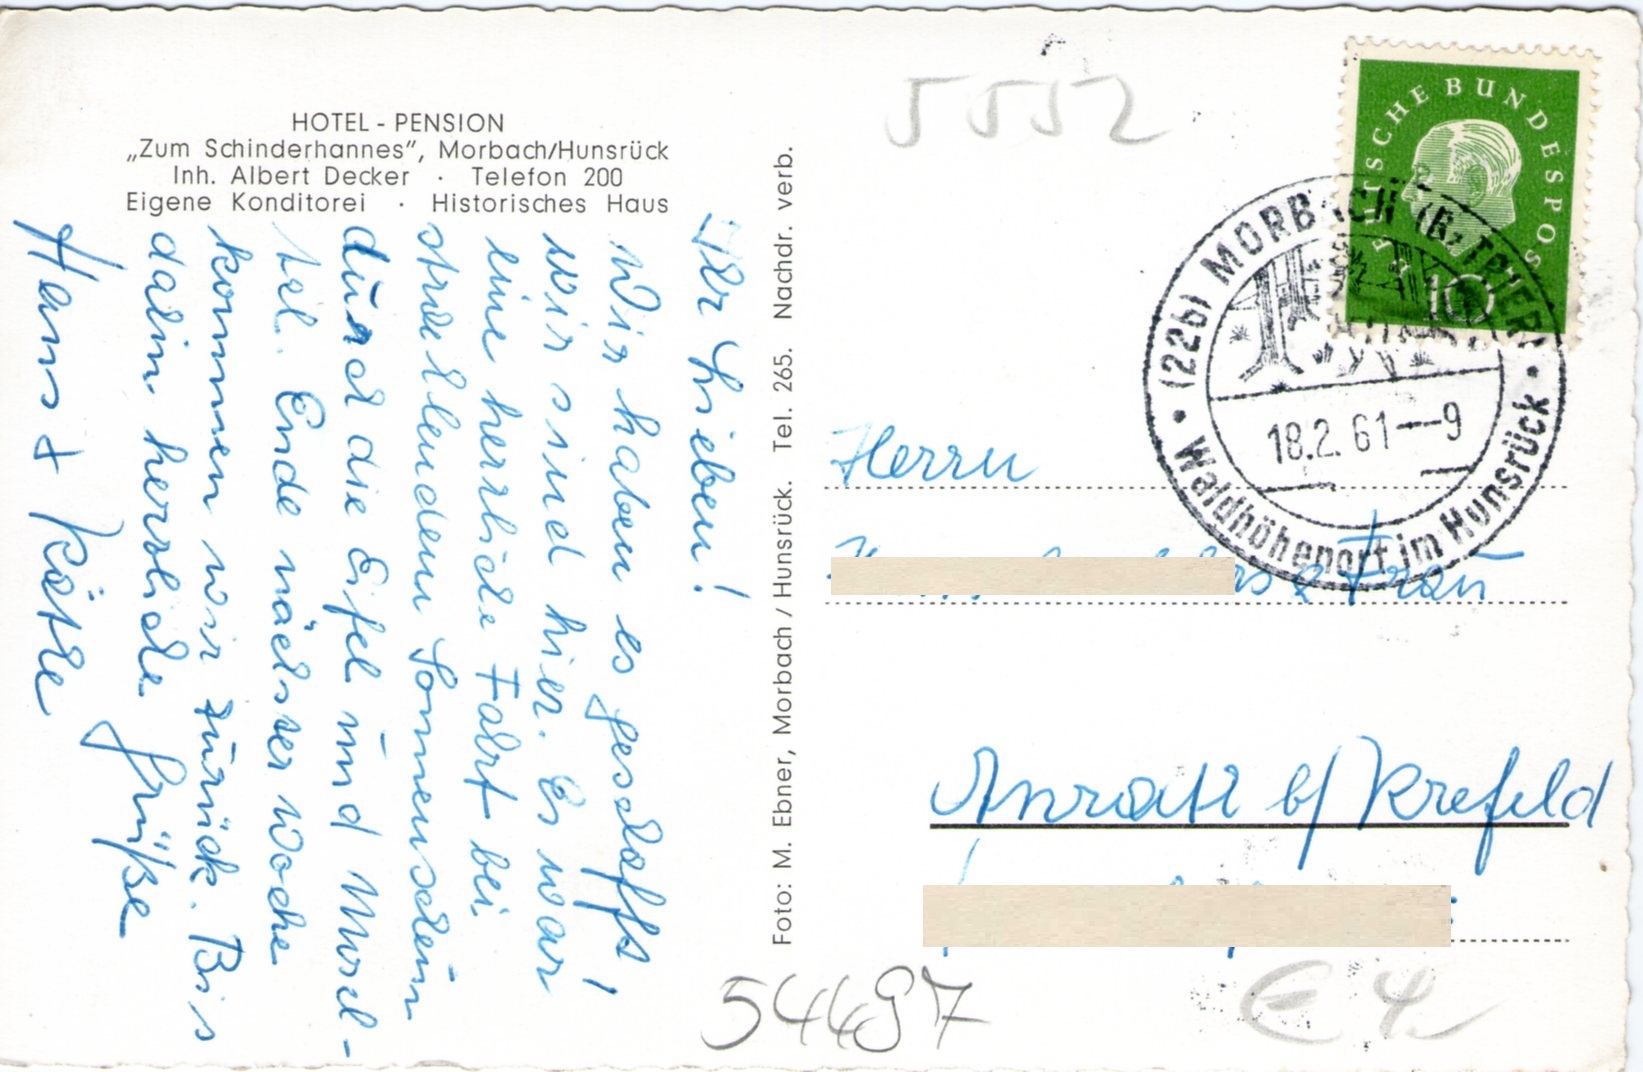 HOTEL - PENSION
„Zum Schinderhannes", Morbach/Hunsrück
Inh. Albert Decker · Telefon 200
Eigene Konditorei · Historisches Haus
Ihr Lieben!
Wir haben es geschafft!
wir sind hier. Es war
eine herrliche Fahrt bei
strahlendem Sonnenschein
durch die Eifel und Mosel-
tal. Ende nächster Woche
kommen wir zurück. Bis
dahin herzliche Grüße
Hans + Käthe
Foto: M. Ebner, Morbach / Hunsrück. Tel. 265. Nachdr. verb.
5552
DEUTSCHE BUNDESPOST
10
(22b) MORBACH (Bz. TRIER)
18.2.61--9
Waldhöhenort im Hunsrück
Herrn
& Frau
Anrath b/ Krefeld
54497
€ 4,-